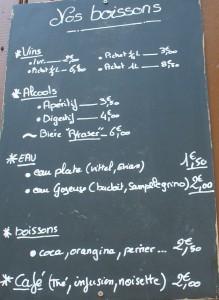 Nos boissons
* Vins
• Pichet ½ L — 
• Pichet 1L — 8,50
* Alcools
• Apéritif — 3,50
• Digestif — 4,00
~ Bière — 6,00
* EAU
• eau plate (vittel, evian) 1€,50
• eau Gazeuse (badoit, San pellegrino) 2€,00
* boissons
• coca, orangina, perrier ... 2€,50
* Café (thé, infusion, noisette) 2€,00